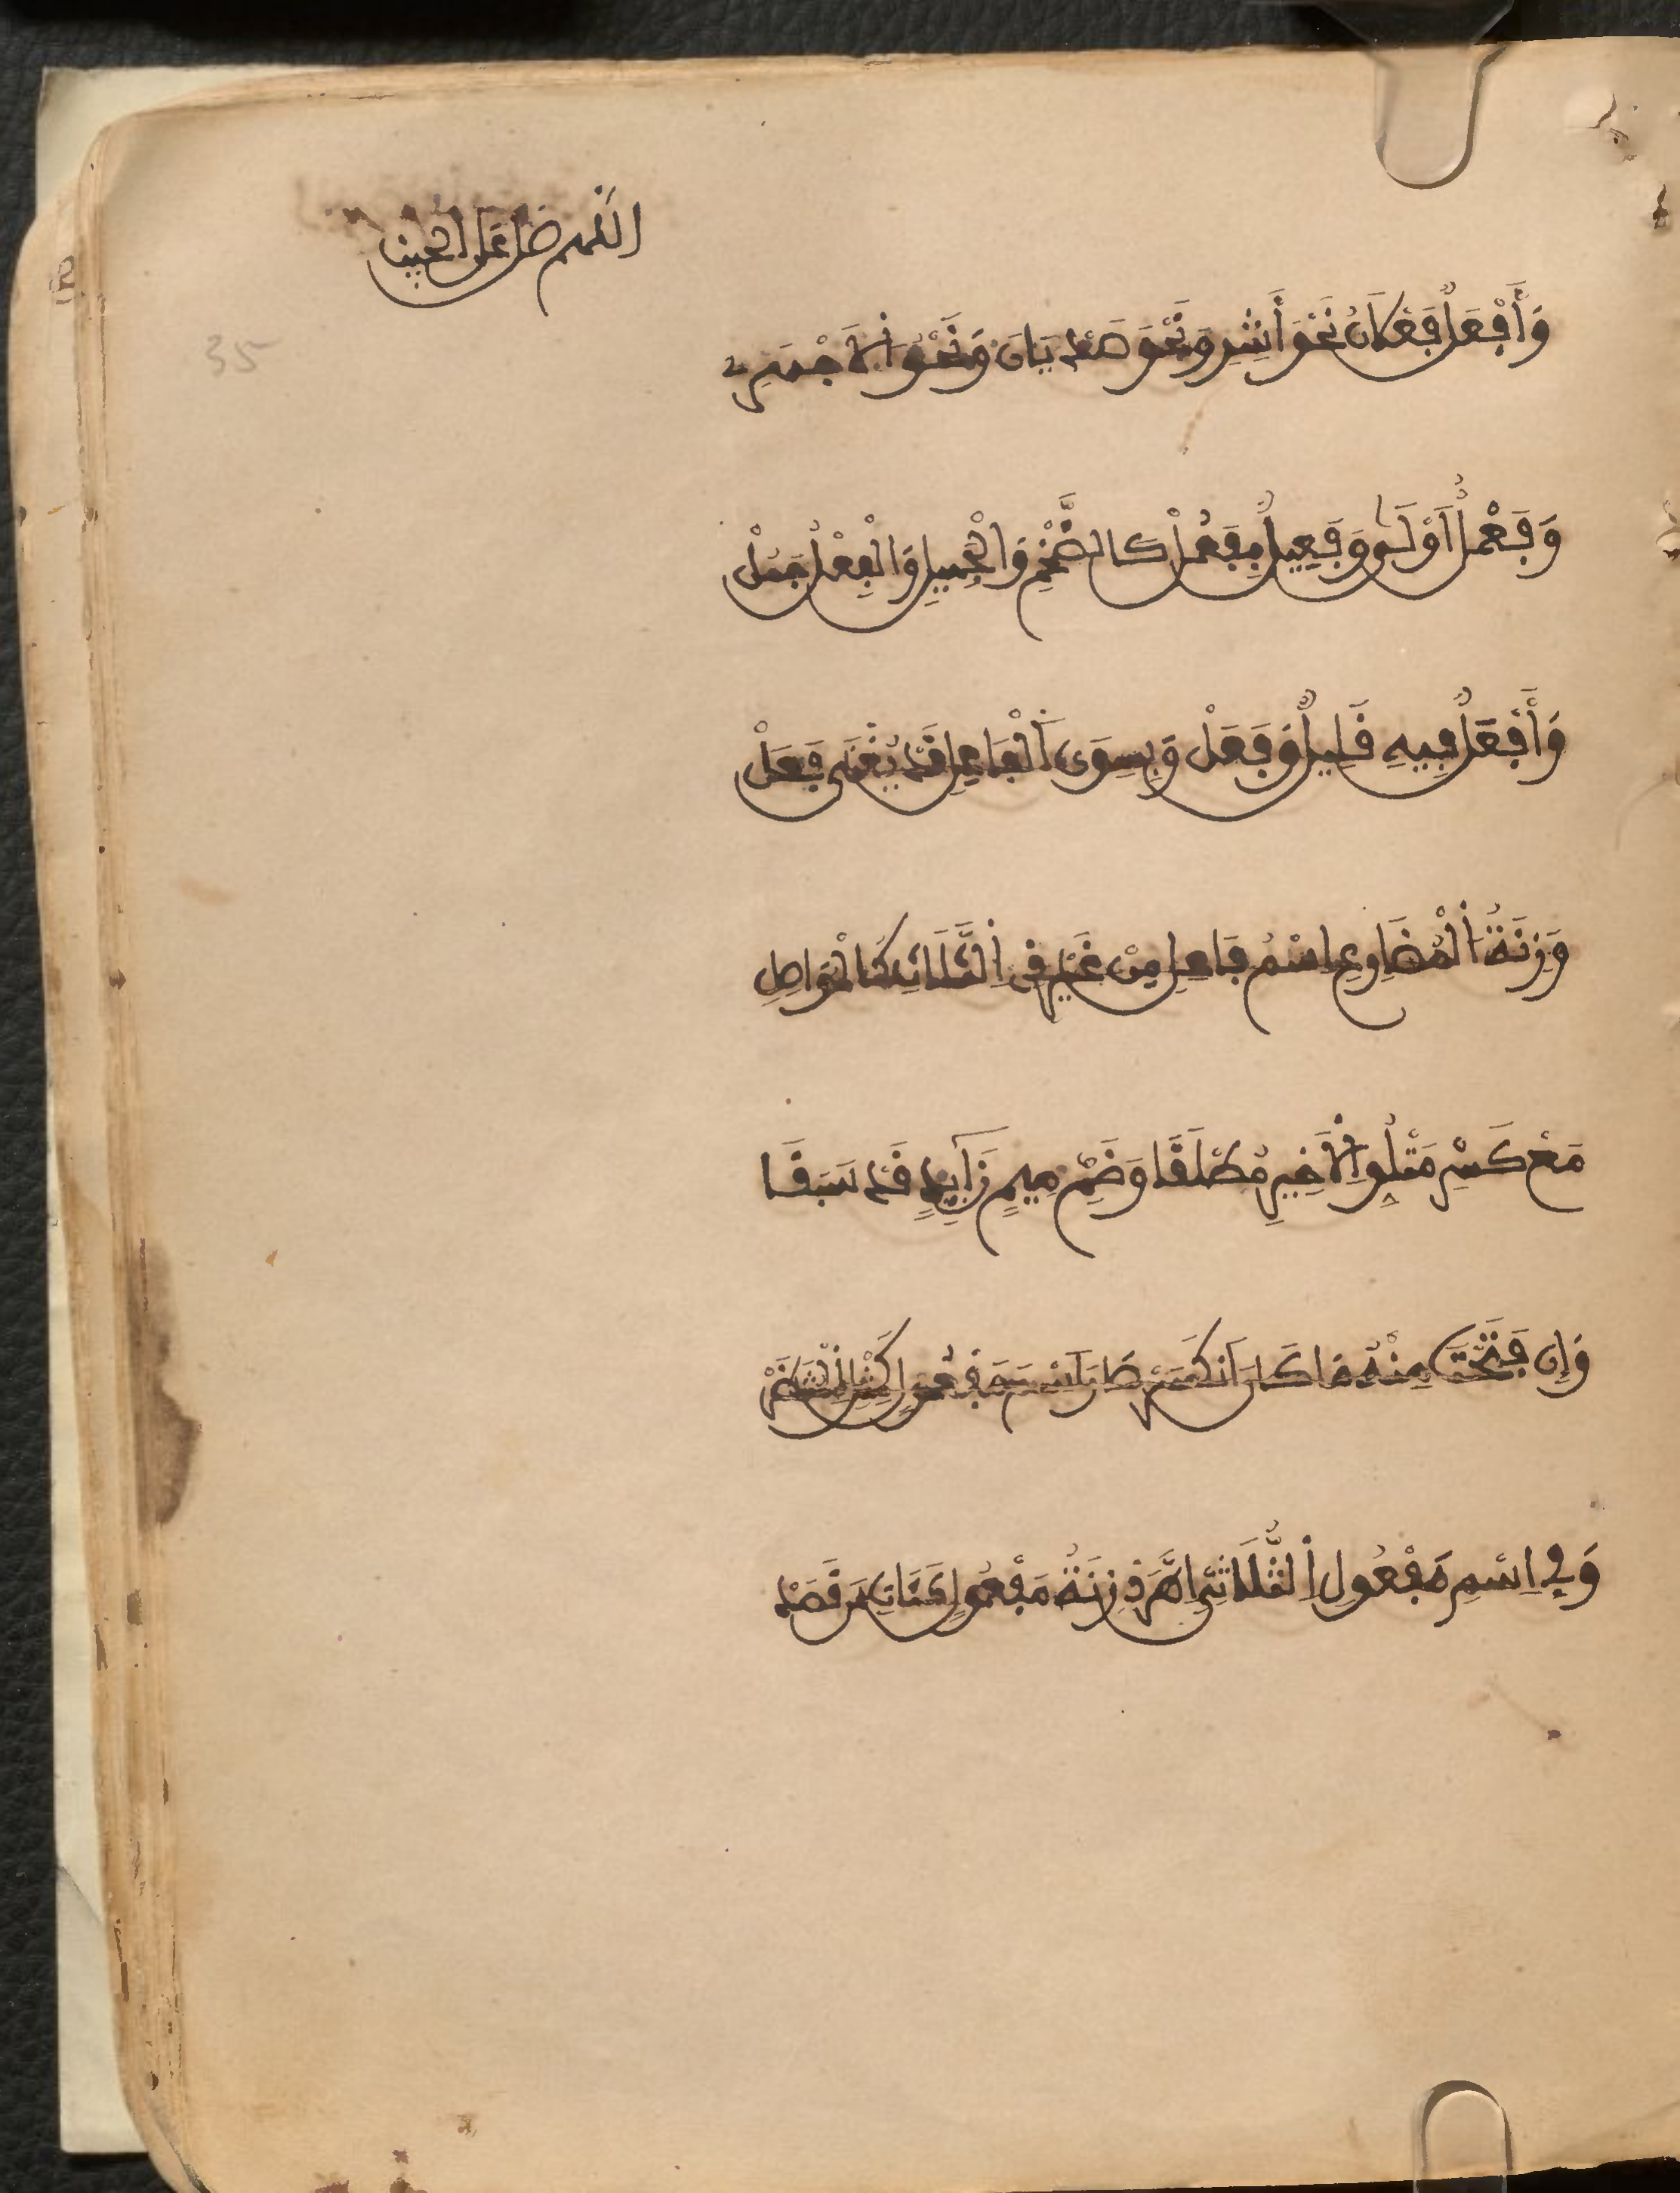 اللهم صل على الحبيب
35
وَأَفْعَلٌ فَعْلَانُ نَحْوَ أَشِرِ وَنَحْوَ صَدْيَانَ وَنَحْوَ الَاجْهَرِ
وَفَعْلٌ اَوْلَى وَفَعِيلٌ بِفَعُلْ كالضَّخْمِ وَالْجَمِيلِ وَالْفِعْلُ جَمُلْ
وَأَفْعَلٌ فِيهِ قَلِيلٌ وَفَعَلْ وَبِسِوَى اَلْفَاعِلِ قَدْ يَغْنَى فَعَلْ
وَزِنَةُ اَلْمُضَارِعِ اسْمُ فَاعِلِ مِنْ غَيْرِ ذِى اِلثَّلَاثِ كَالْمُوَاصِلِ
مَعْ كَسْرِ مَتْلُوِّ اِلَاخِيرِ مُطْلَقَا وَضَمِّ مِيمٍ زَايِدٍ قَدْ سَبَقَا
وَإِن فَتَحْتَ مِنْهُ مَا كَانَ اَنْكَسَرْ صَارَ اَسْمَ مَفْعُولٍ كَمِثْلِ الْمُنْتَظَرْ
وَفِي اِسْمِ مَفْعُولِ اِلثُّلَاثِيِّ اِطَّرَدْ زِنَةُ مَفْعُولٍ كَئَاتٍ مِنْ قَصَدْ